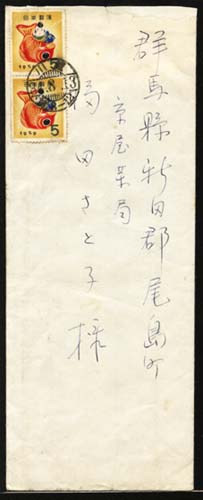 群馬縣新田郡尾島町
京屋薬局
福田さと子様
日本郵便
5
1959
日本郵便
5
1959